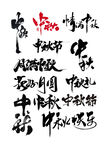 中秋 中秋 情满中秋
中秋节 中秋
月满中秋
花好月圆 中秋礼
中秋 中秋 中秋节
中秋 中秋快乐